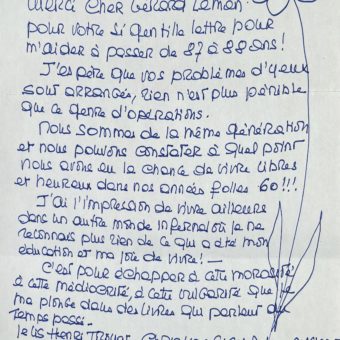 Merci Cher Gérard Lemon.
pour votre si gentille lettre pour
m'aider à passer de 87 à 88 ans !
J'espère que vos problèmes d'yeux
sont arrangés, rien n'est plus pénible
que ce genre d'opérations.
Nous sommes de la même génération
et nous pouvons constater à quel point
nous avons eu la chance de vivre libres
et heureux dans nos années folles 60 !!!
J'ai l'impression de vivre ailleurs
dans un autre monde infernal où je ne
reconnais plus rien de ce qui a été mon
éducation et ma joie de vivre ! —
C'est pour échapper à cette morosité
à cette médiocrité, à cette vulgarité que je
me plonge dans des livres qui parlent du
temps passé.
je lis Henri Troyat